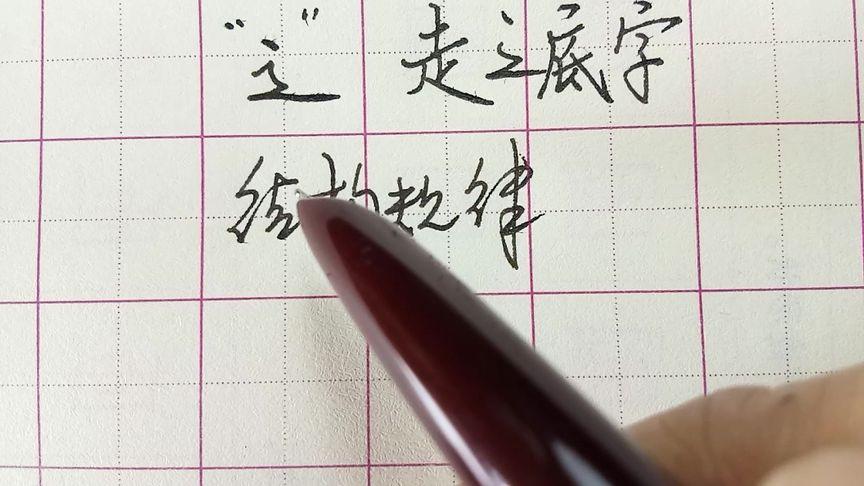 “辶”走之底字
结构规律